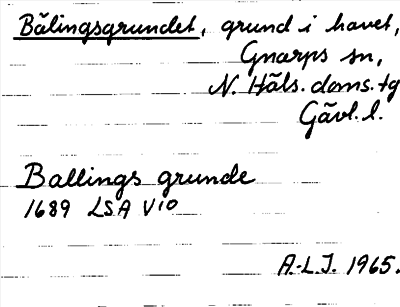 Bålingsgrundet, grund i havet,
Gnarps sn,
N. Häls. doms. tg
Gävl. l.
Ballings grunde
1689 LSA V10
A-L.J. 1965.